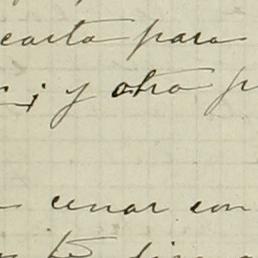 carta para
; y otra p
cenar con